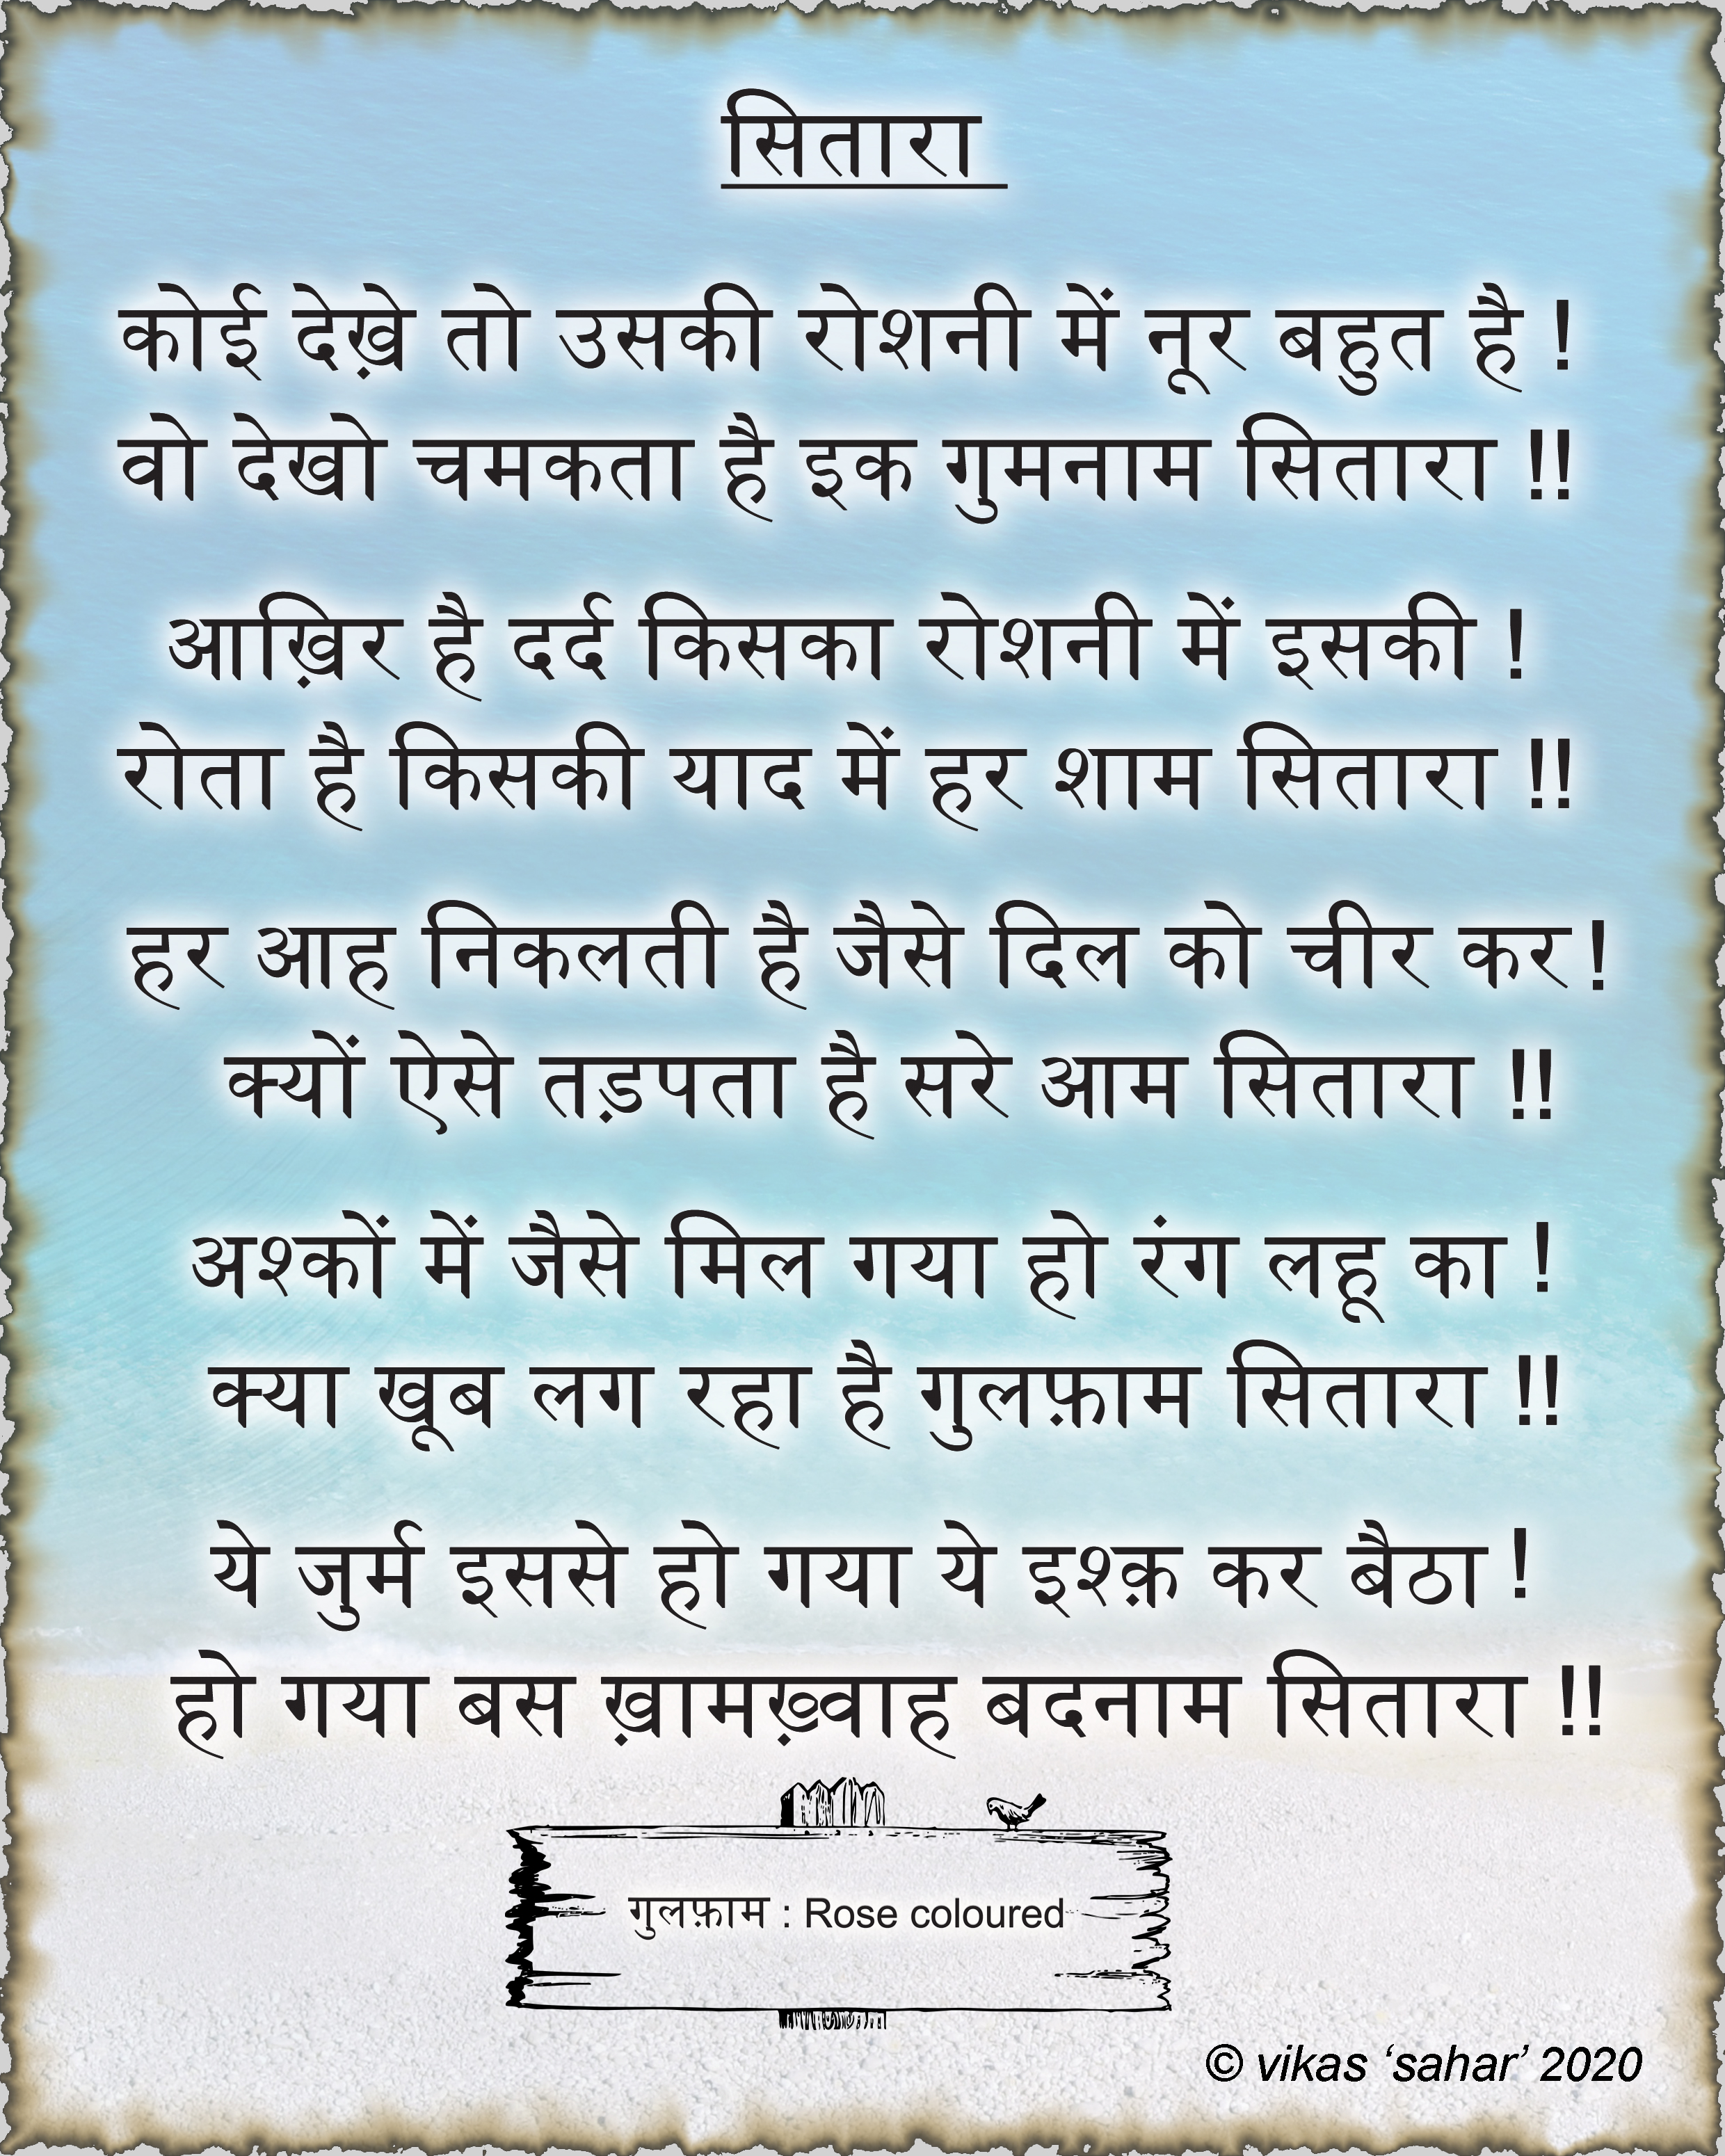 सितारा
कोई देख़े तो उसकी रोशनी में नूर बहुत है !
वो देखो चमकता है इक गुमनाम सितारा !!
आख़िर है दर्द किसका रोशनी में इसकी !
रोता है किसकी याद में हर शाम सितारा !!
हर आह निकलती है जैसे दिल को चीर कर!
क्यों ऐसे तड़पता है सरे आम सितारा !!
अश्कों में जैसे मिल गया हो रंग लहू का !
क्या खूब लग रहा है गुलफ़ाम सितारा !!
ये जुर्म इससे हो गया ये इश्क़ कर बैठा !
हो गया बस ख़ामख़्वाह बदनाम सितारा !!
गुलफ़ाम : Rose coloured
© vikas ‘sahar’ 2020